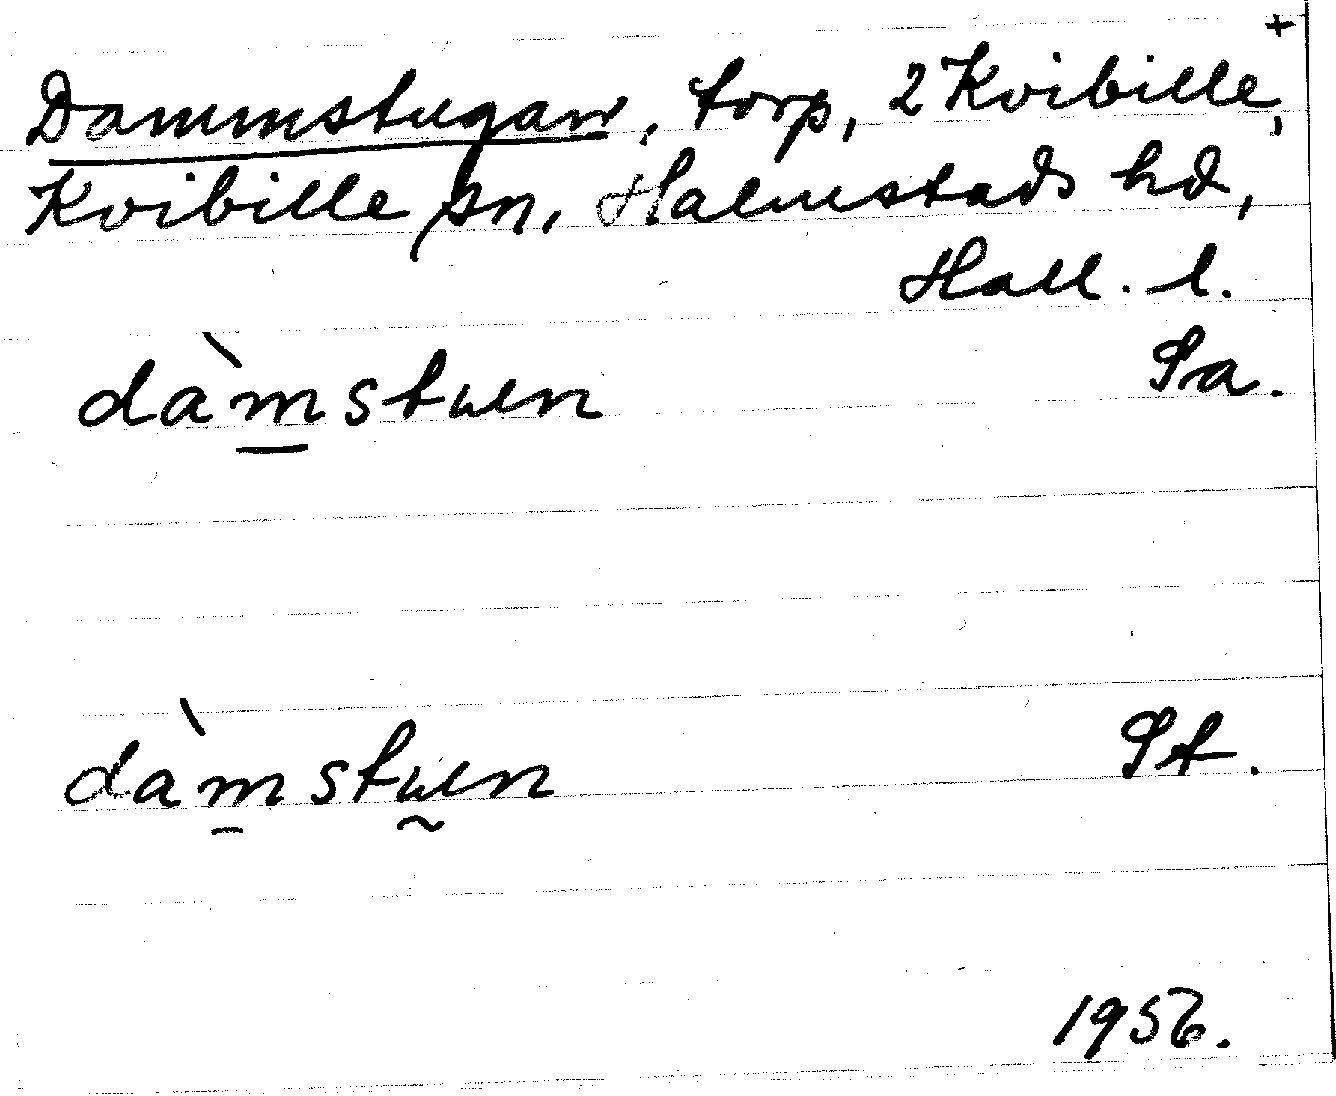 +
Dammstugan, torp, 2 Kvibille,
Kvibille sn, Halmstads hd,
Hall. l.
dàmstuen Sa.
dàmstuen St.
1956.